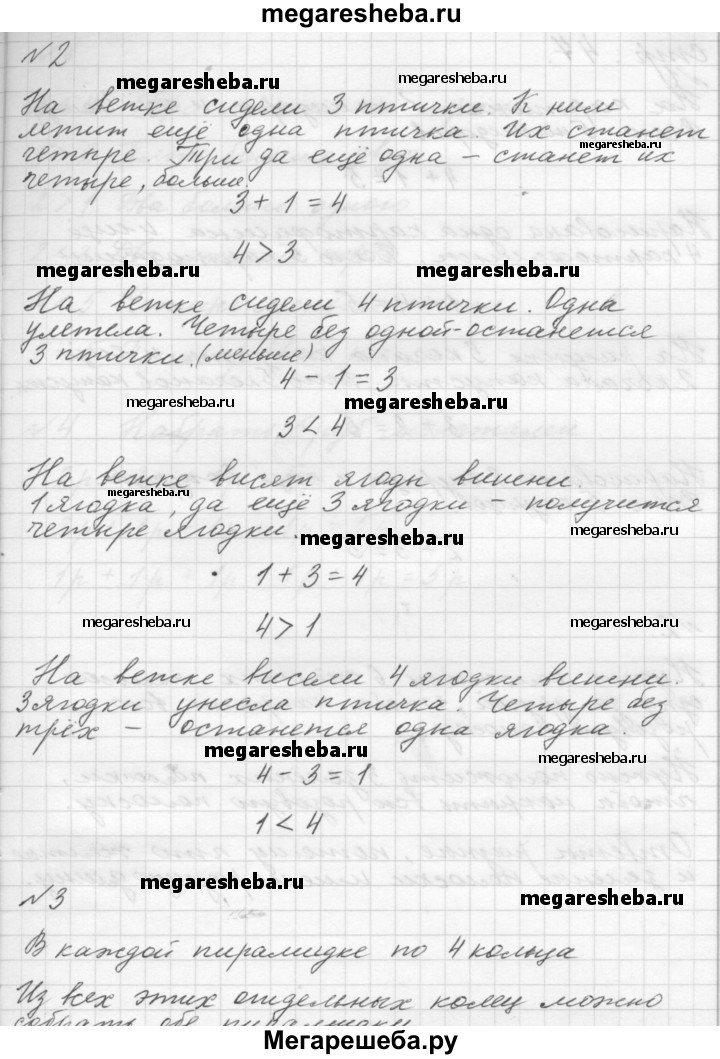 megaresheba.ru
№2
megaresheba.ru
megaresheba.ru
На ветке сидели 3 птички. К ним
летит ещё одна птичка. Их станет
megaresheba.ru
четыре. Три да ещё одна – станет их
четыре, больше.
3 + 1 = 4
4 > 3
megaresheba.ru
megaresheba.ru
На ветке сидели 4 птички. Одна
улетела. Четыре без одной - останется
3 птички. (меньше)
4 - 1 = 3
megaresheba.ru
megaresheba.ru
3 < 4
На ветке висят ягоды вишни.
megaresheba.ru
1 ягодка, да ещё 3 ягодки – получится
четыре ягодки.
megaresheba.ru
megaresheba.ru
1 + 3 = 4
megaresheba.ru
megaresheba.ru
4 > 1
На ветке висели 4 ягодки вишни.
3 ягодки унесла птичка. Четыре без
трёх – останется одна ягодка.
megaresheba.ru
megaresheba.ru
4 - 3 = 1
1 < 4
megaresheba.ru
№3
megaresheba.ru
В каждой пирамидке по 4 кольца
Из всех этих отдельных колец можно
собрать обе пирамидки
Мегарешеба.ру